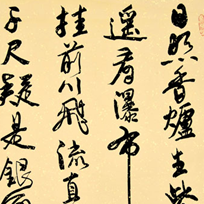 日照香爐生紫
遙看瀑布
挂前川飛流直
千尺疑是銀